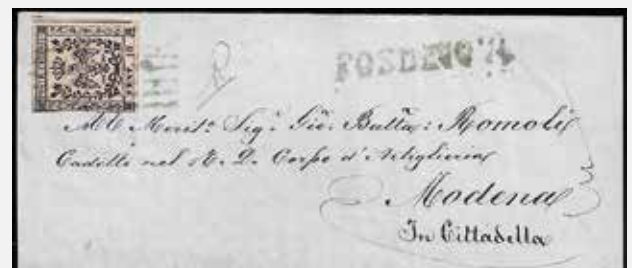 FOSDINO
All Merit.º Sig.r Gio. Batta: Romoli
Cadetto nel R. D. Corpo d'Artiglieria
Modena
In Cittadella